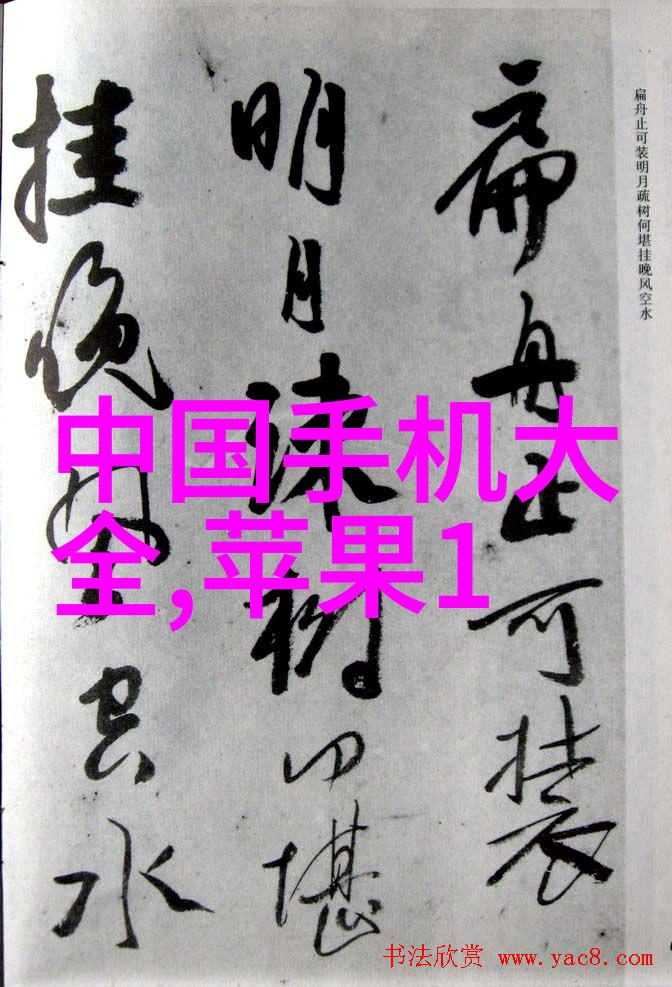 扁舟止可装
明月疎树何堪
挂晚风空水
扁舟止可装明月疏树何堪挂晚风空水
中国手机大
全,苹果1
书法欣赏 www.yac8.com